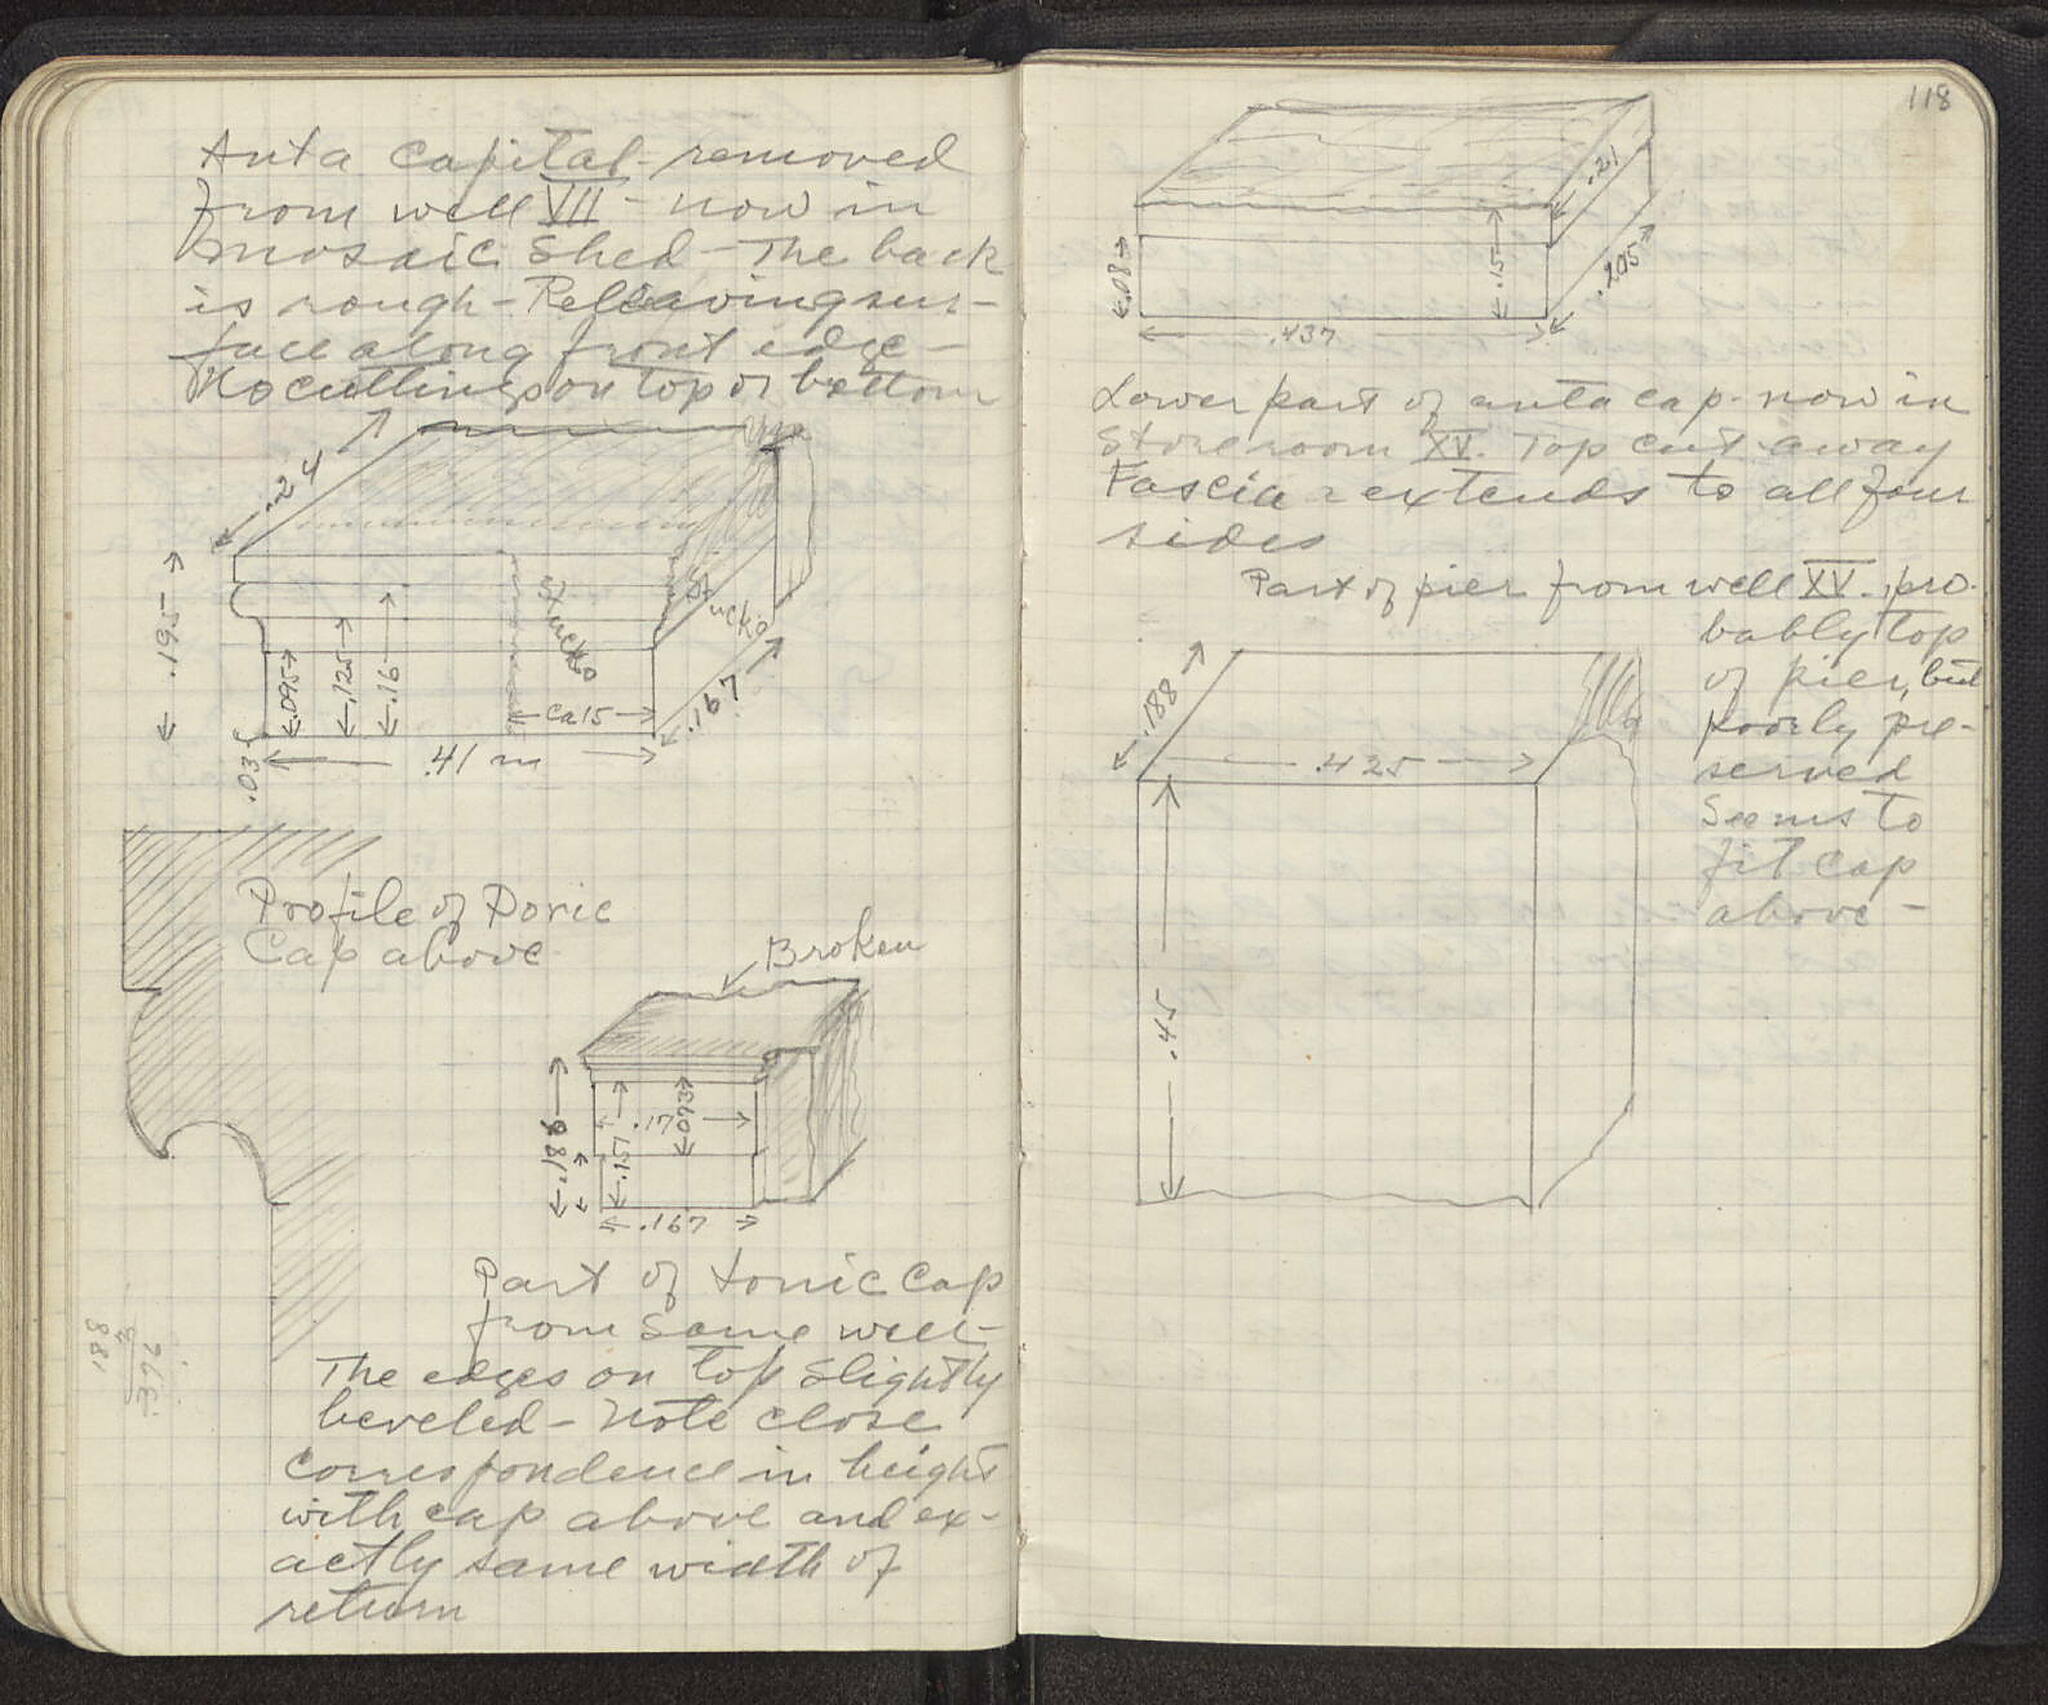 Anta capital - removed
from well VII - now in
mosaic shed - The back
is rough - Relieving sur-
face along front edge -
No cuttings on top or bottom
.24
.195
Stucko
Stucko
.095
.125
.16
ca 15
.167
.03
.41 m
Profile of Doric
Cap above
Broken
.186
.17
.093
.15
.167
Part of Ionic Cap
from same well -
The edges on top slightly
beveled - Note close
correspondence in height
with cap above and ex-
actly same width of
return
188
376
118
.21
.08
.15
.437
Lower part of anta cap - now in
Storeroom XV. Top cut away
Fascia extends to all four
sides
Part of pier from well XV. pro-
bably top
of pier, but
poorly pre-
served
Seems to
fit cap
above -
.188
.425
.45